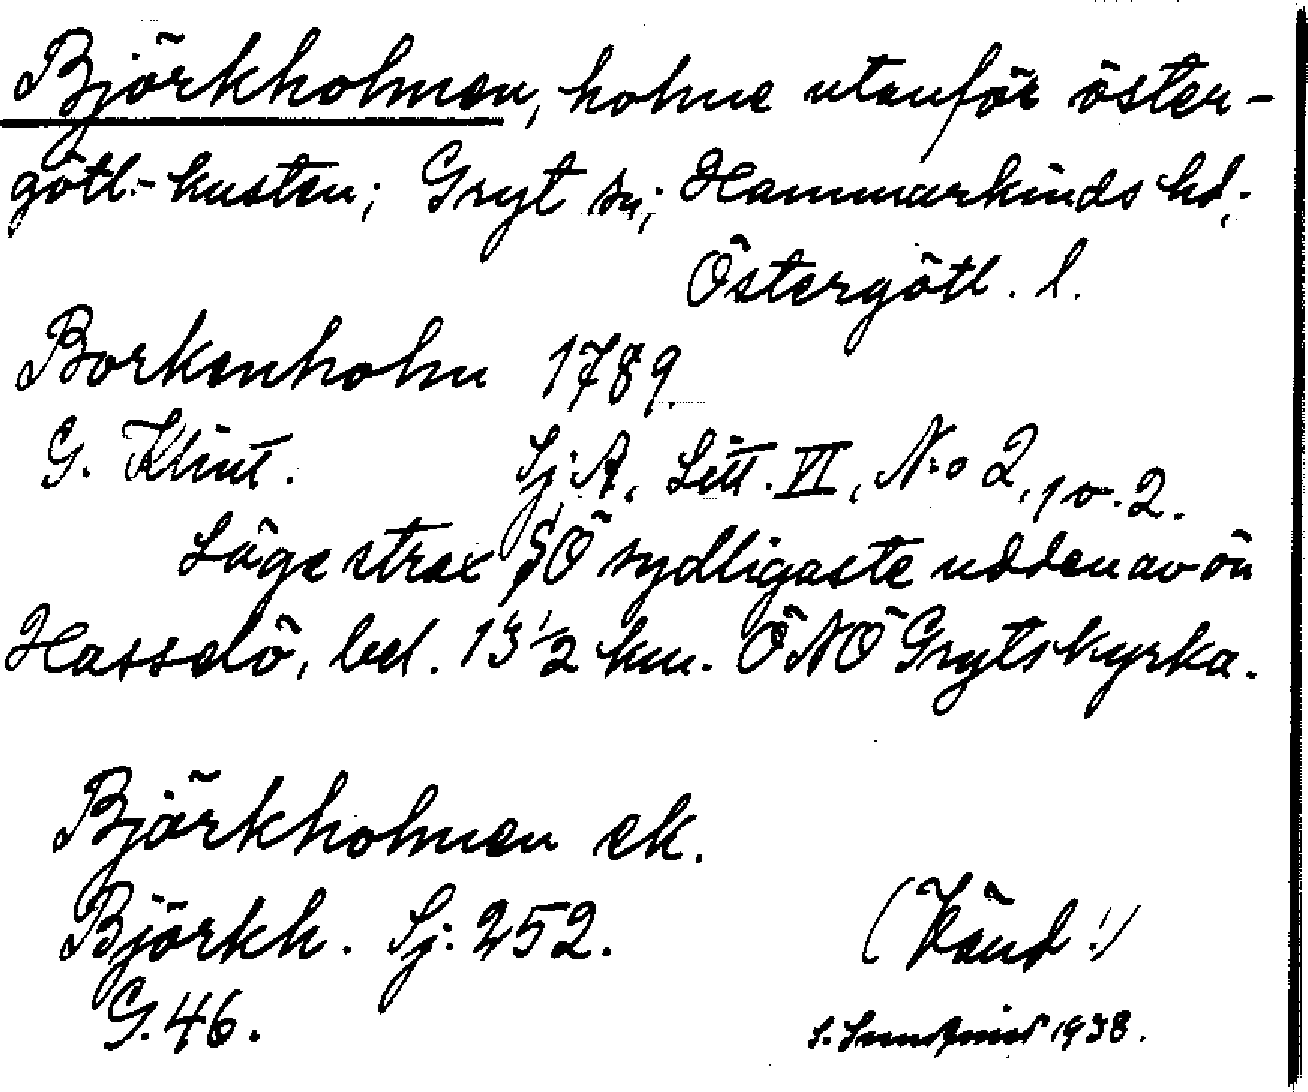 Björkholmen, holme utanför öster-
götl.-kusten; Gryt sn; Hammarkinds hd;
Östergötl. l.
Borkenholm 1789.
G. Klint. Sj. A, Litt. VI, N:o 2, 1 o. 2.
Läge strax SÖ sydligaste udden av ön
Hasselö, bel. 13 1/2 km. ÖNÖ Gryts kyrka.
Björkholmen ek.
Björkh. Sj. 252.
G. 46.
(Vänd!)
1938.